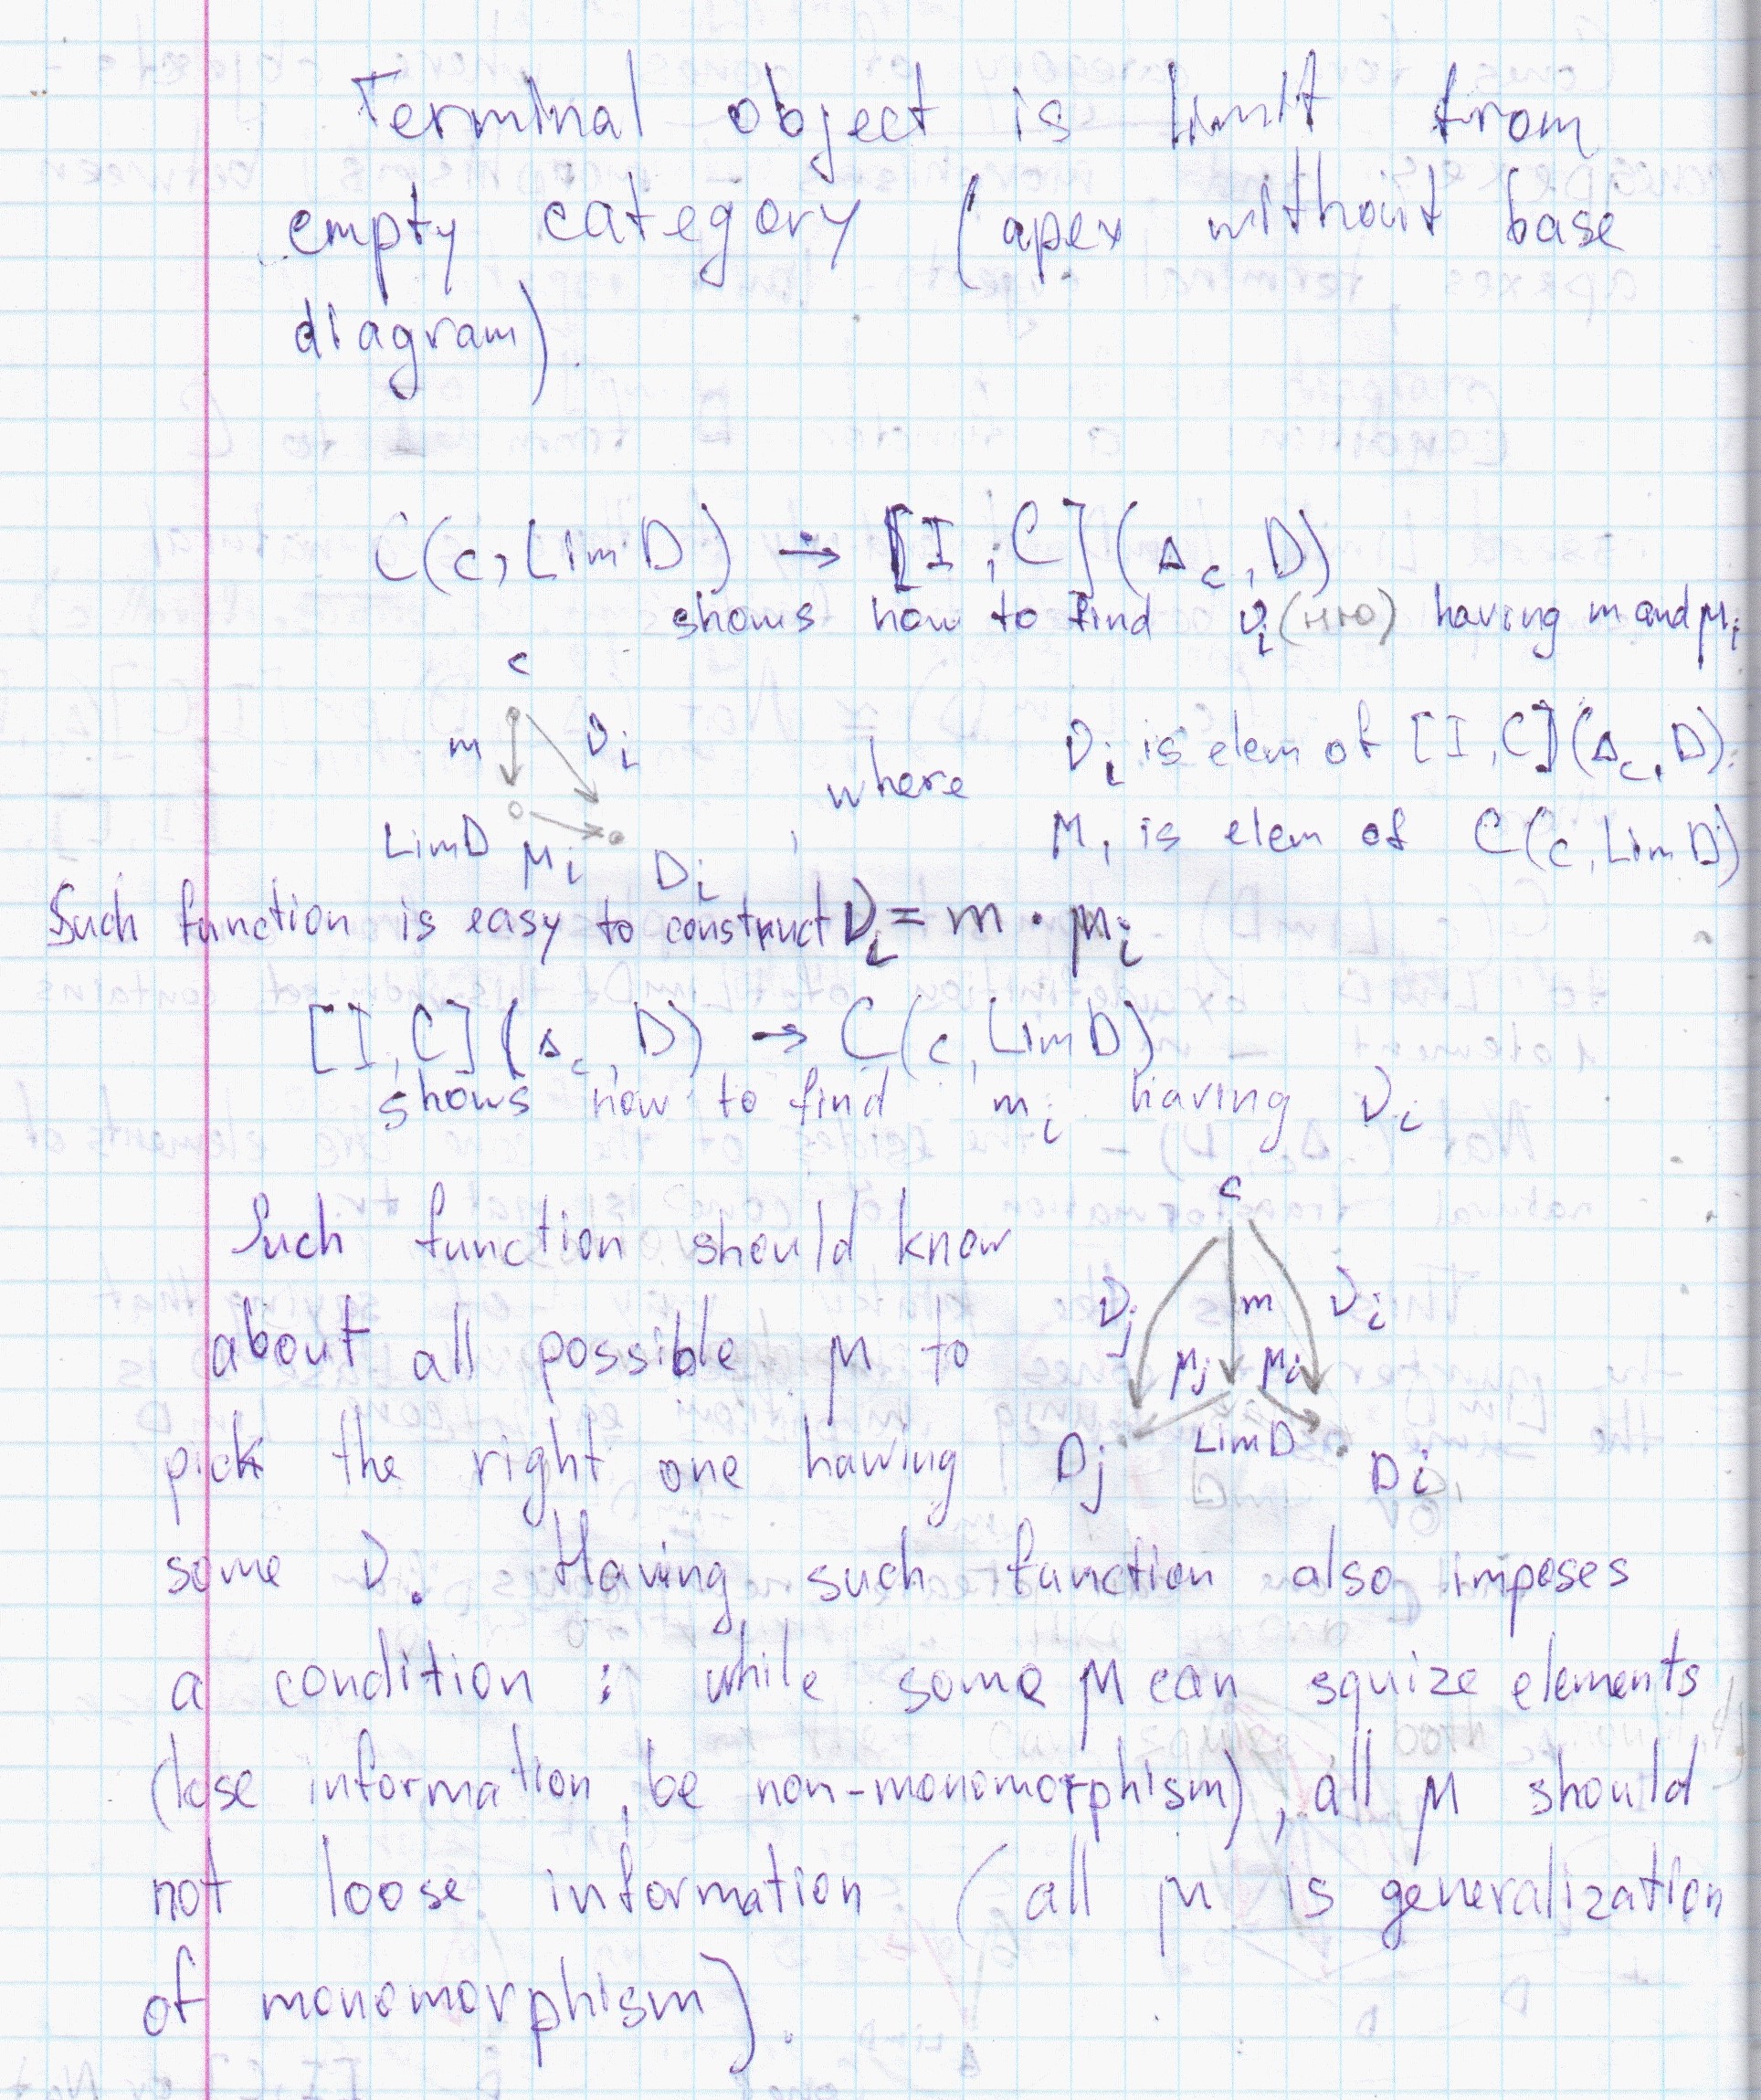 Terminal object is limit from
empty category (apex without base
diagram).
C(c, Lim D) → [I, C](Δc, D)
shows how to find νi (ню) having m and μi
c
m νi
Lim D μi Di
, where νi is elem of [I, C](Δc, D).
Mi is elem of C(c, Lim D)
Such function is easy to construct νi = m · μi
[I, C](Δc, D) → C(c, Lim D)
shows how to find mi having νi
Such function should know
about all possible μ to
pick the right one hawing
c
νj m νi
μj μi
Dj Lim D Di
some ν. Having such function also imposes
a condition : while some μ can squize elements
(lose information, be non-monomorphism), all μ should
not loose information (all μ is generalization
of monomorphism).